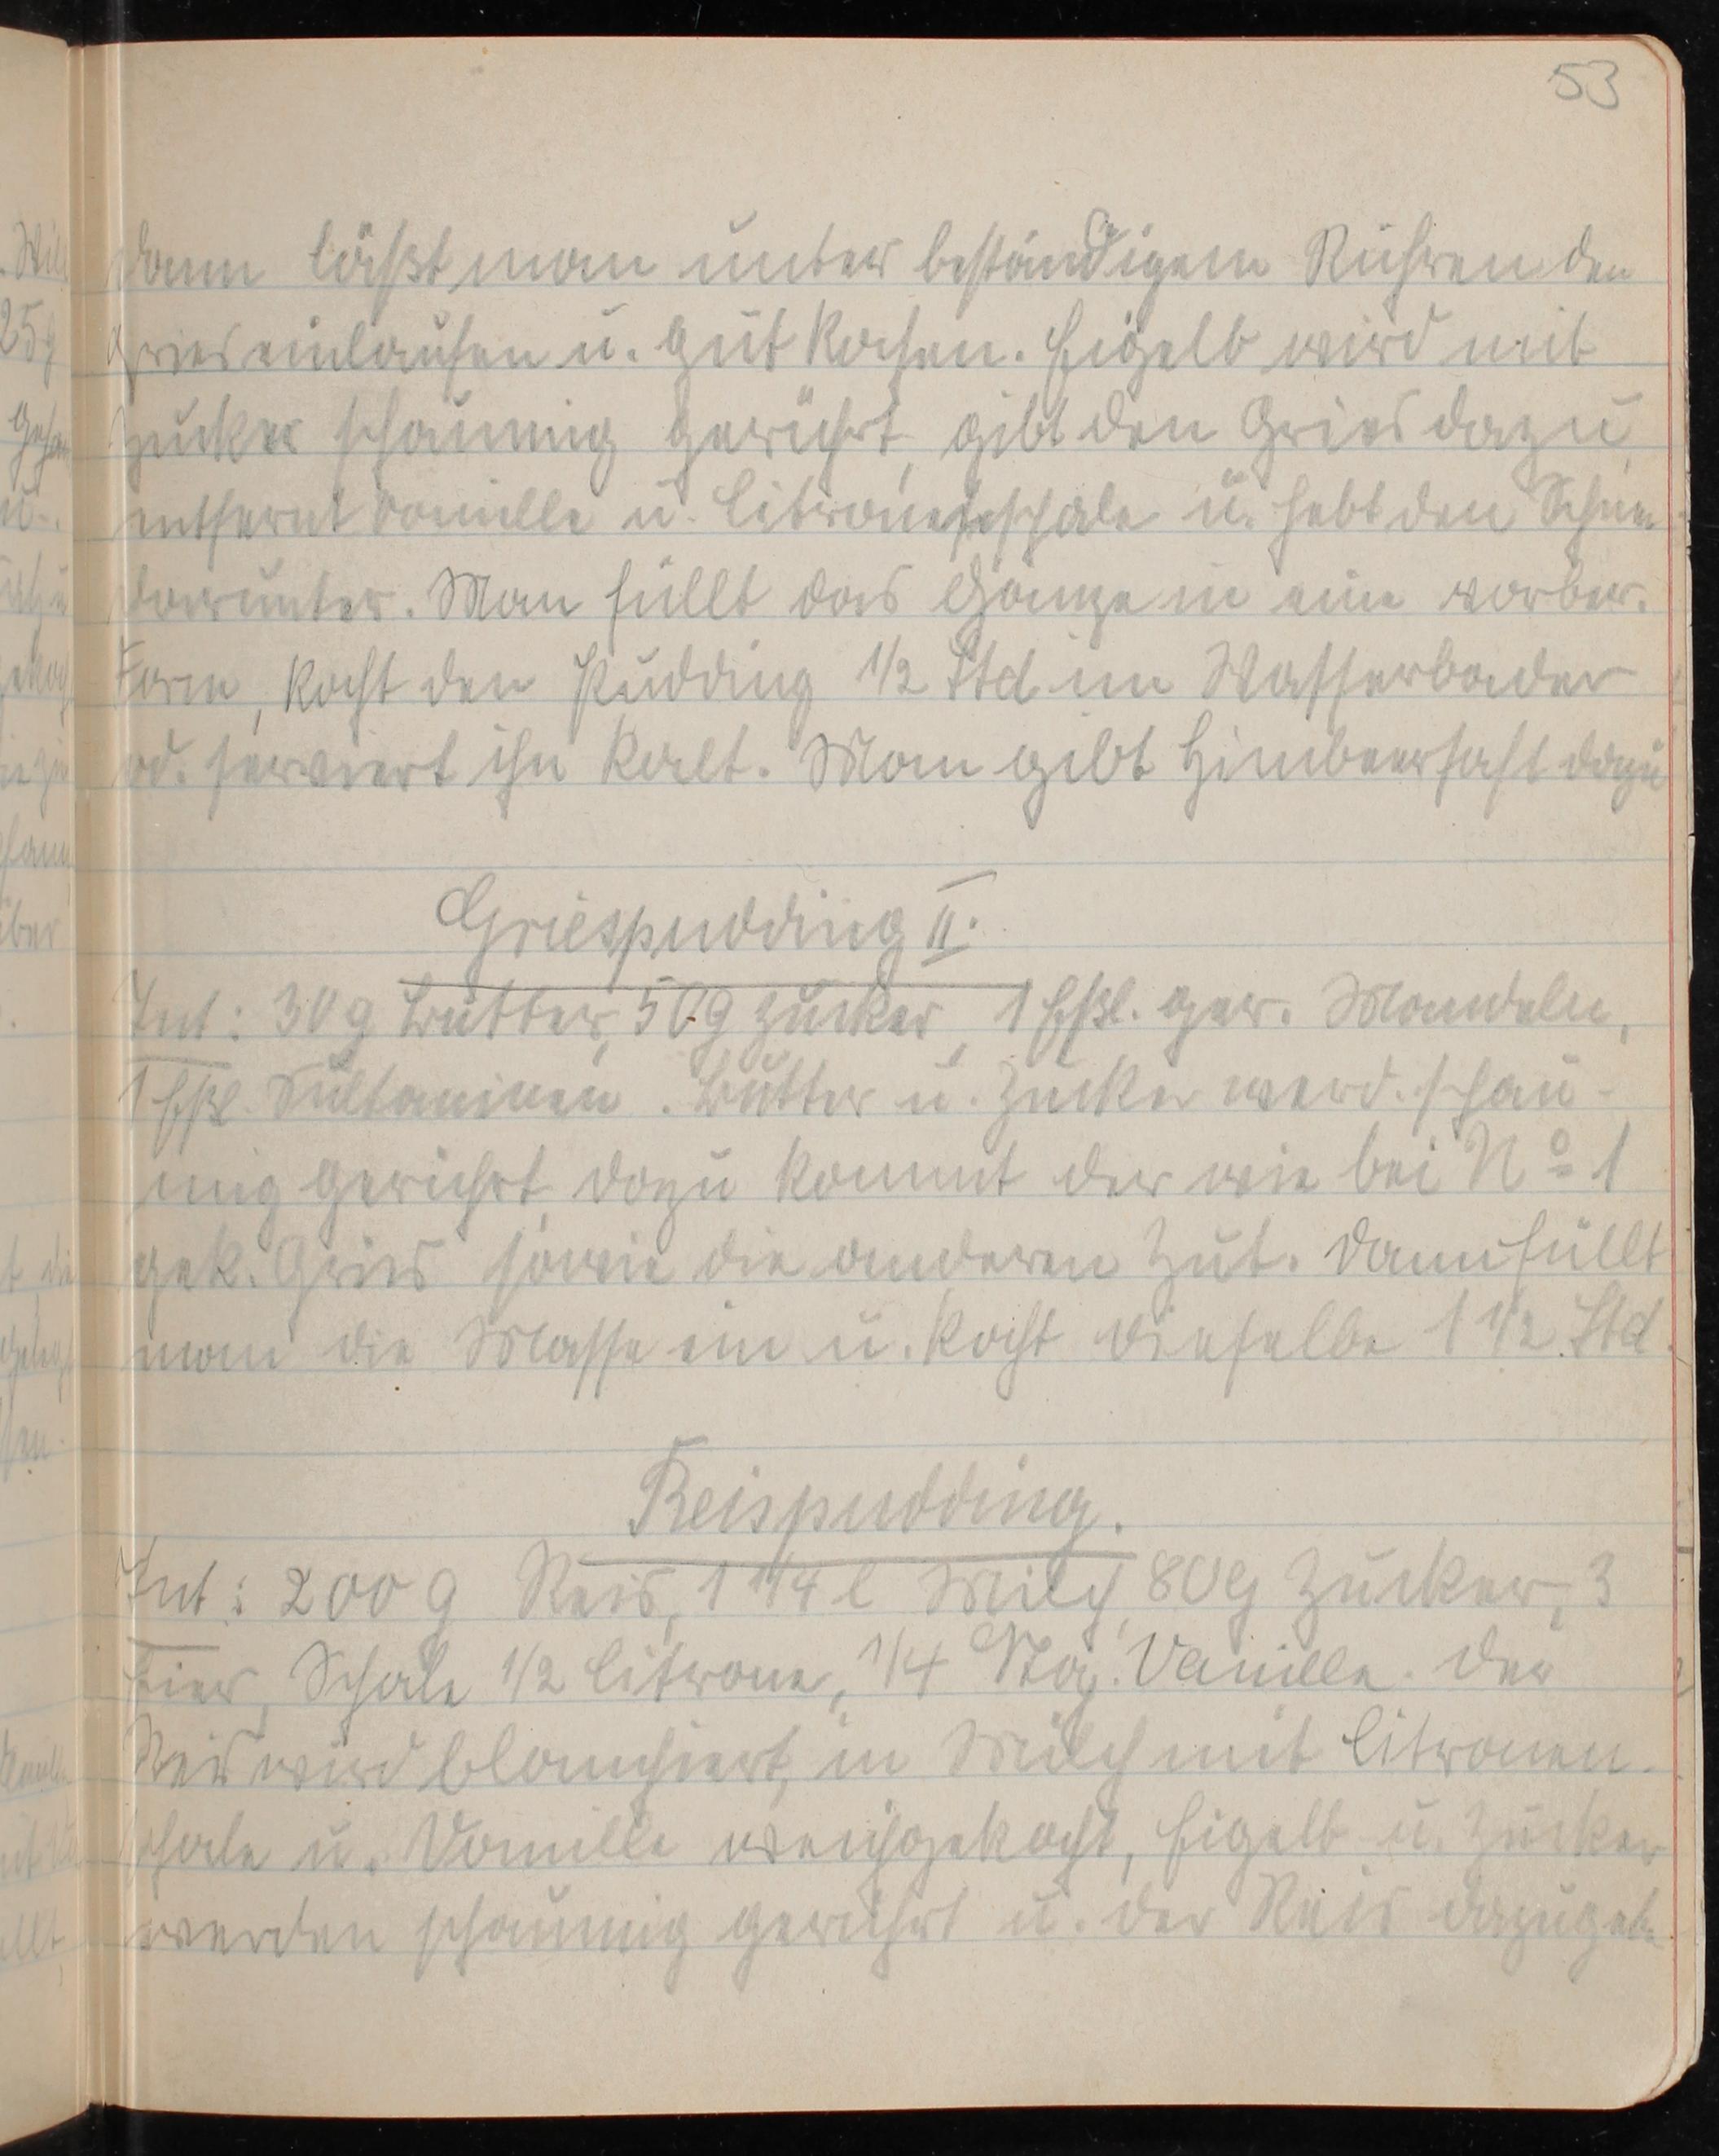 53
dann läßt man unter beständigem Rühren den
Gries einlaufen u. gut kochen. Eigelb wird mit
Zucker schaumig gerührt, gibt den Gries dazu,
entfernt Vanille u. Citronenschale u. hebt den Schnee
darunter. Man füllt das Ganze in eine vorber.
Form, kocht den Pudding 1/2 Std im Wasserbade
od. serviert ihn kalt. Man gibt Himbeersaft dazu
Griespudding II.
Zut: 30 g Butter, 50 g Zucker, 1 Eßl. ger. Mandeln,
1 Eßl. Sultaninen. Butter u. Zucker werd. schau-
mig gerührt, dazu kommt der wie bei No 1
gek. Gries sowie die anderen Zut. Dann füllt
man die Masse ein u. kocht dieselbe 1 1/2 Std.
Reispudding.
Zut: 200 g Reis, 1 1/4 l Milch, 80 g Zucker, 3
Eier, Schale 1/2 Citrone, 1/4 Stg. Vanille. Der
Reis wird blanchiert, in Milch mit Citronen-
schale u. Vanille weichgekocht, Eigelb u. Zucker
werden schaumig gerührt u. der Reis dazugeb